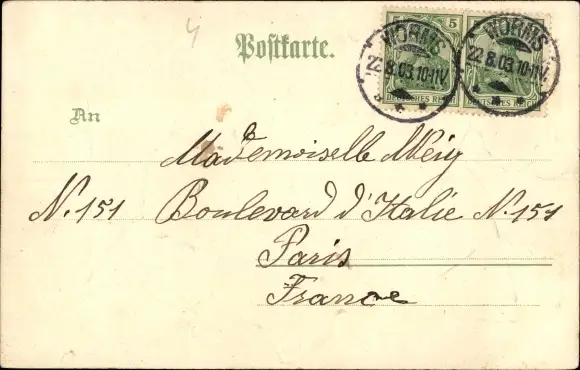 4
5 5
DEUTSCHES REICH DEUTSCHES REICH
WORMS
22.8.03.10-11V.
WORMS
22.8.03.10-11V.
Postkarte.
An
Mademoiselle
N. 151 Boulevard d'Italie N. 151
Paris
France